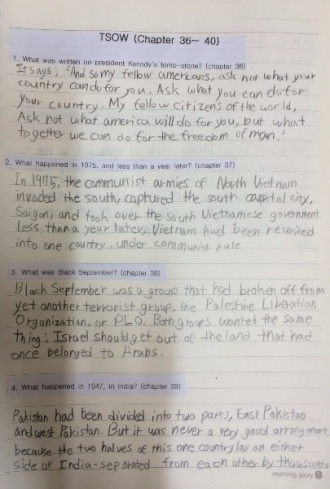 TSOW (Chapter 36~ 40)
1. What was written on president Kennedy's tomb-stone? (chapter 36)
It says, "And so my fellow amercans, ask not what your
country can do for you. Ask what you can do for
your country. My fellow citizens of the world,
Ask not what america will do for you, but what
together we can do for the freedom of man."
2. What happened in 1975, and less than a year later? (chapter 37)
In 1975, the communist armies of North Vietnam
invaded the south, captured the south capital city,
Saigon, and took over the South Vietnamese government.
less than a year later, Vietnam had been reunited
into one country, under communist rule.
3. What was Black September? (chapter 38)
Black September was a group that had broken off from
yet another terrorist group, the Palestine Liberation
Organization, or PLO. Both groups wanted the same
thing: Israel should get out of the land that had
once belonged to Arabs.
4. What happened in 1947, in India? (chapter 39)
Pakistan had been divided into two parts, East Pakistan
and west Pakistan. But it was never a very good arrangment,
because the two halves of this one country lay on either
side of India-separated from each other by thousands
morning glory